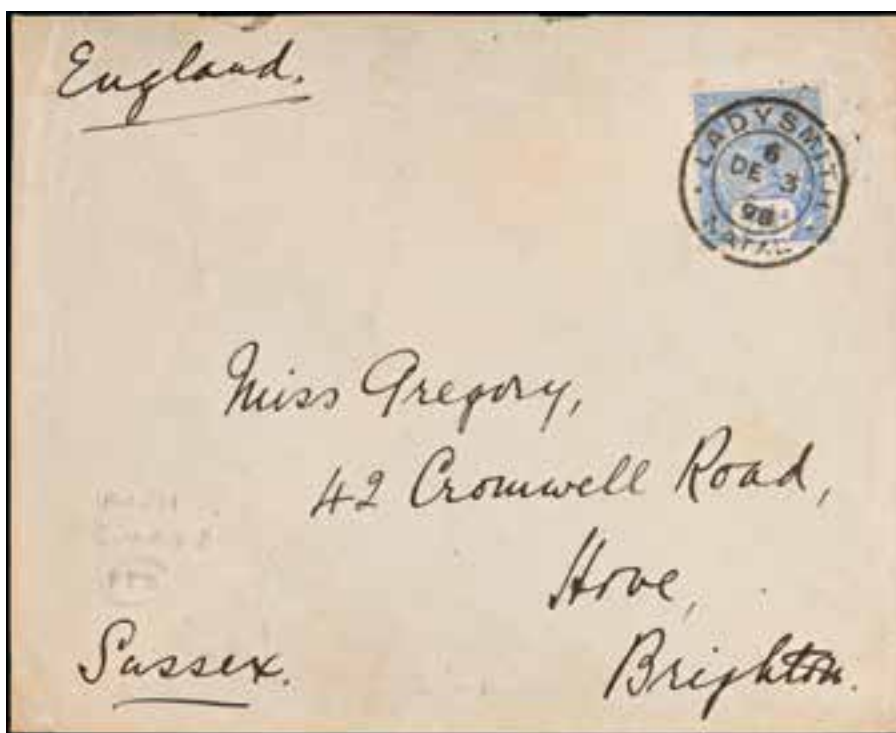 England.
LADYSMITH
6
DE 3
98
NATAL
Miss Gregory,
42 Cromwell Road,
Hove,
Brighton.
Sussex.